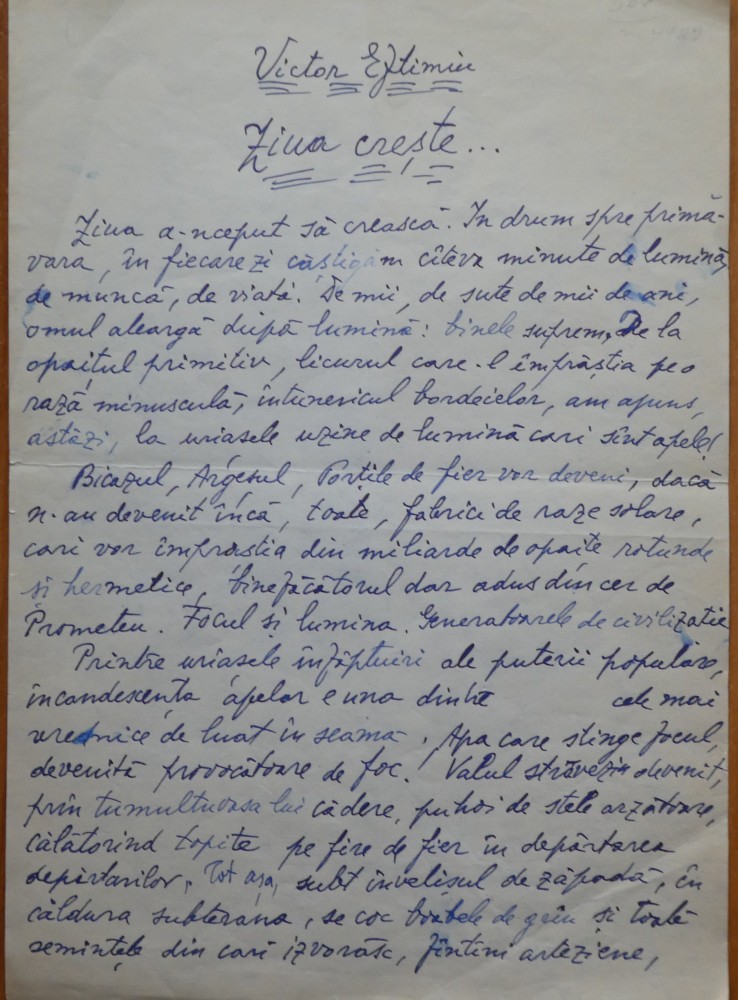 Victor Eftimiu
Ziua crește...
Ziua a-nceput să crească. In drum spre primă-
vara, în fiecare zi câștigăm cîteva minute de lumină,
de muncă, de viată. De mii, de sute de mii de ani,
omul aleargă după lumină: binele suprem. De la
opaițul primitiv, licurul care-l împrăștia pe o
rază minusculă, întunericul bordeielor, am ajuns,
astăzi, la uriasele uzine de lumină cari sînt apele!
Bicazul, Argesul, Porțile de fier vor deveni, dacă
n-au devenit încă, toate, fabrici de raze solare,
cari vor împrăstia din miliarde de opaite rotunde
si hermetice, binefăcătorul dar adus din cer de
Prometeu. Focul si lumina. Generatoarele de civilizatie
Printre uriasele înfăptuiri ale puterii populare,
incandescența apelor e una dintre cele mai
vrednice de luat în seamă. Apa care stinge focul,
devenită provocătoare de foc! Valul străveziu devenit,
prin tumultuoasa lui cădere, puhoi de stele arzătoare,
călătorind topite pe fire de fier în depărtarea
depărtarilor. Tot așa, subt învelisul de zăpadă, în
căldura subterana, se coc boabele de grîu și toate
semințele din cari izvorăsc, fîntîni arteziene,